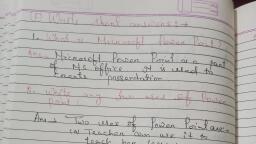 Write short answers :→
1. What is Microsoft Power Point?
Ans→ Microsoft Power Point is a part
of MS office. It is used to
create presentation
2. Write any two uses of Power
Point.
Ans → Two uses of Power Point are
Teacher can use it to
teach